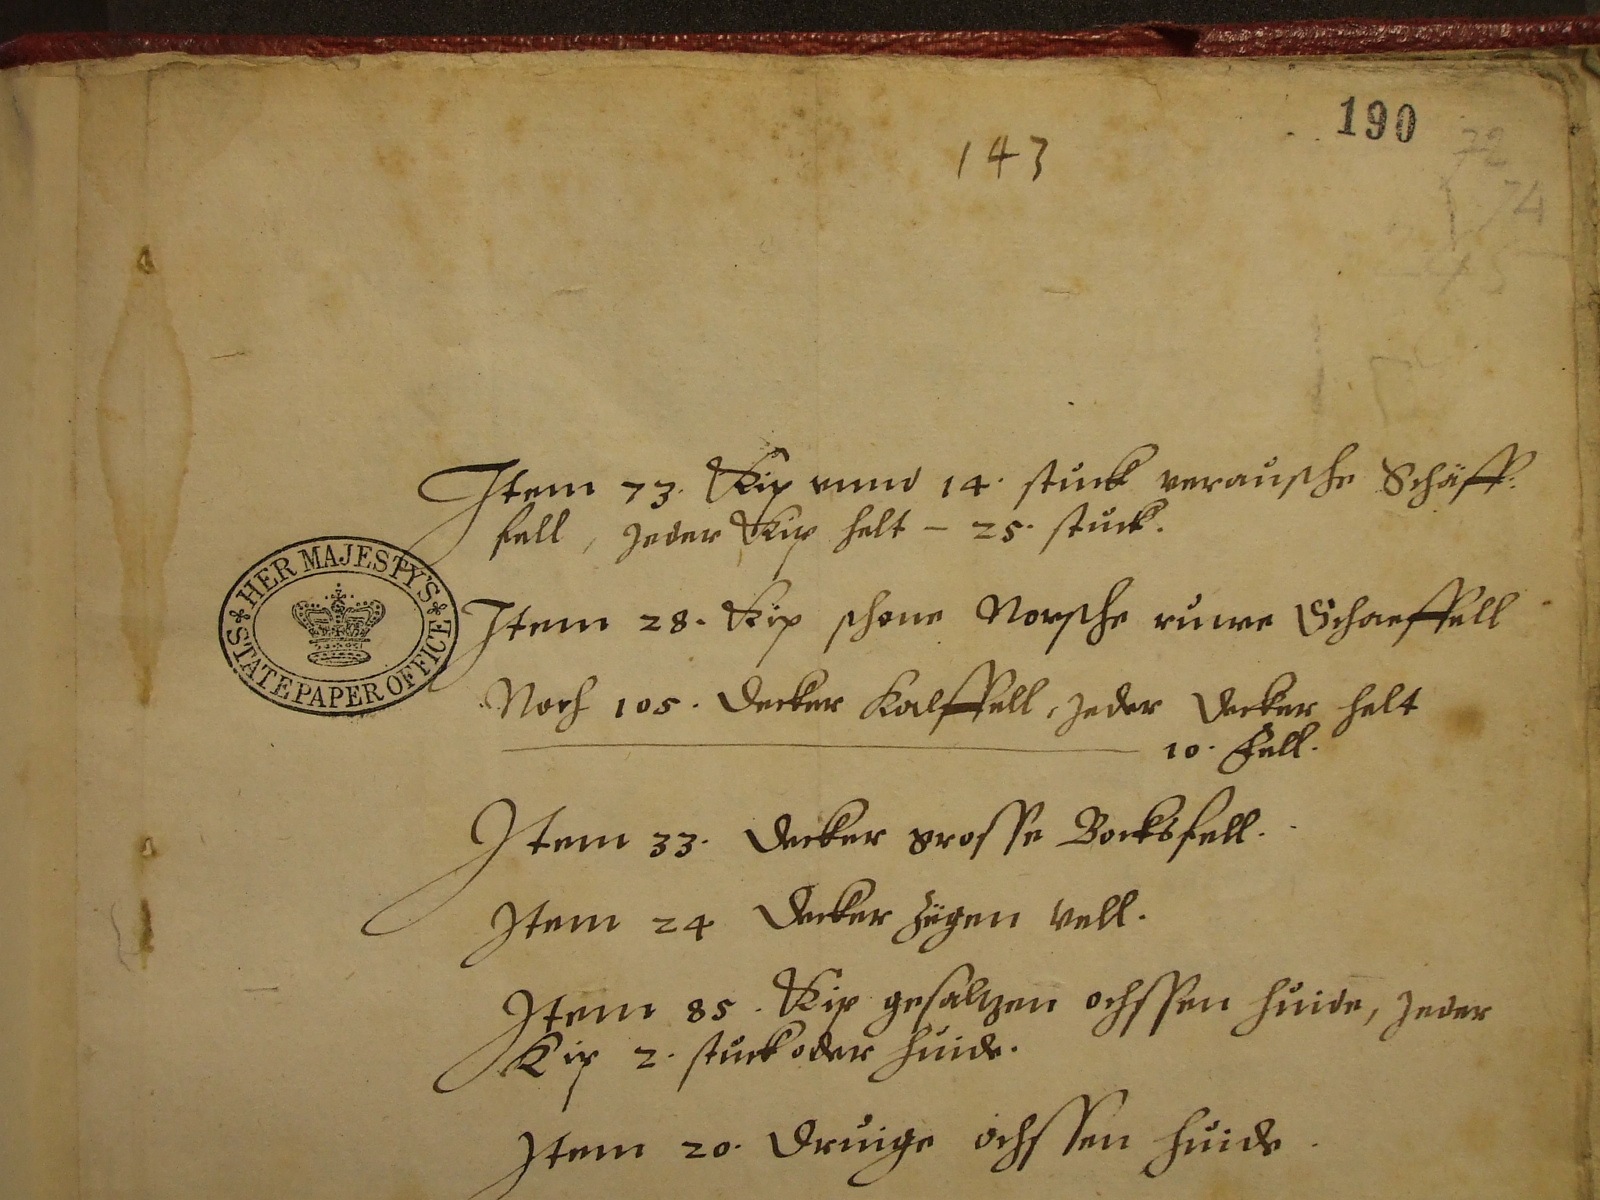 190
143
72
74
Item 73. Kip vnnd 14. stuck verausche Schäff.
fell, Jeder Kip helt – 25. stuck.
HER MAJESTY'S
STATE PAPER OFFICE
Item 28. Kip schone Norsche ruwe Schaeffell
Noch 105. Decker Kalffell, Jeder Decker helt
10. Fell.
Item 33. Decker grosse Bocksfell.
Item 24 Decker Zÿgen vell.
Item 85. Kip gesaltzen ochssen huide, Jeder
Kip 2. stuck oder huide.
Item 20. Druige ochssen huide.